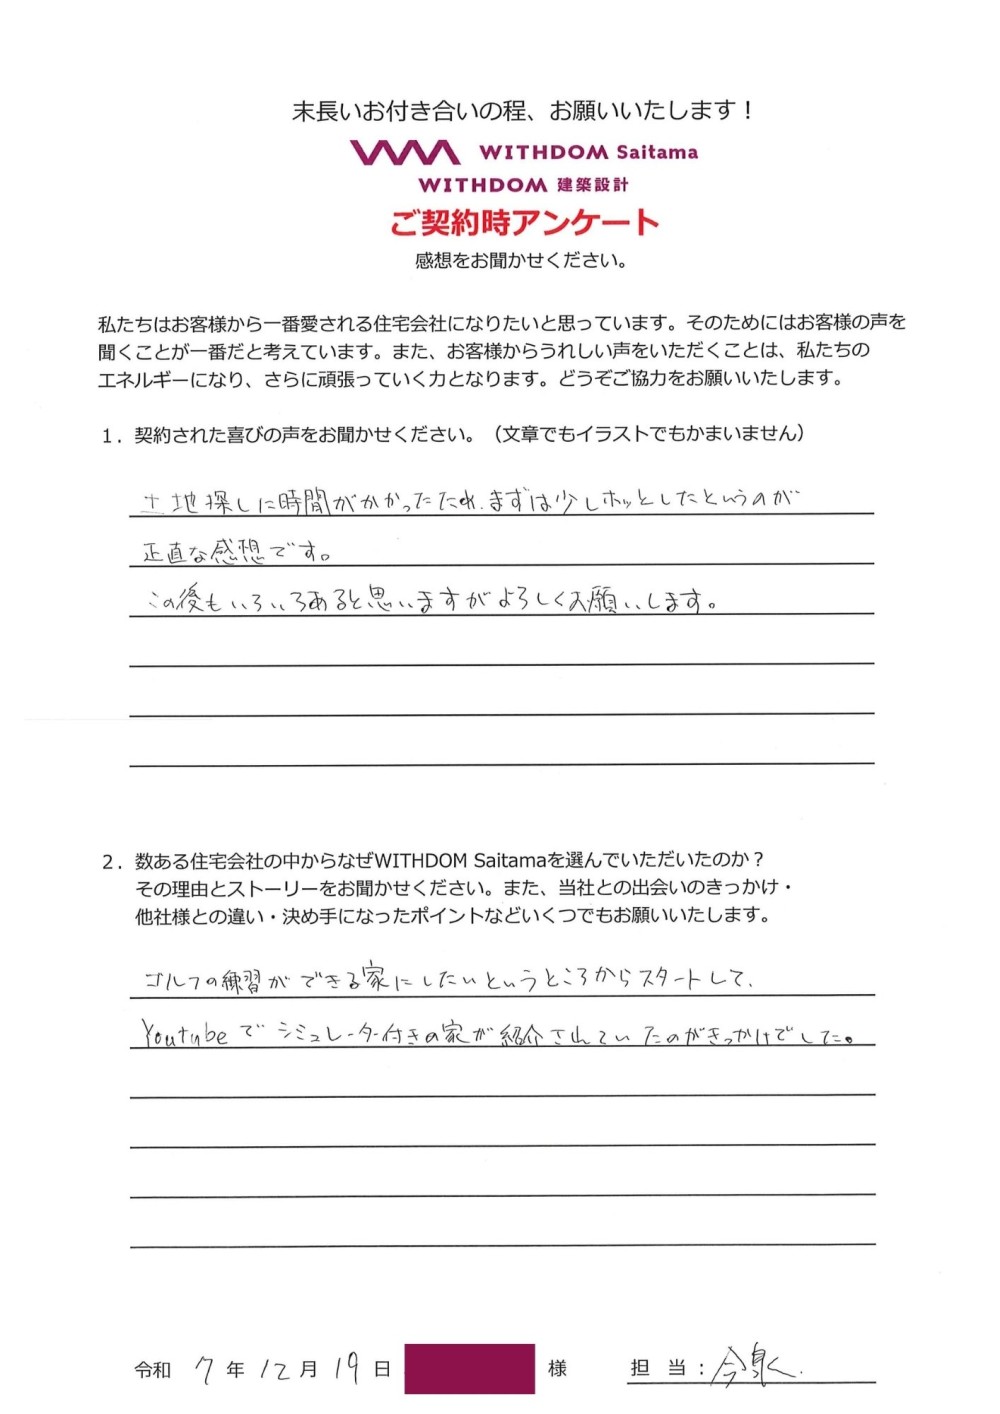 末長いお付き合いの程、お願いいたします！
WITHDOM Saitama
WITHDOM 建築設計
ご契約時アンケート
感想をお聞かせください。
私たちはお客様から一番愛される住宅会社になりたいと思っています。そのためにはお客様の声を
聞くことが一番だと考えています。また、お客様からうれしい声をいただくことは、私たちの
エネルギーになり、さらに頑張っていく力となります。どうぞご協力をお願いいたします。
１．契約された喜びの声をお聞かせください。（文章でもイラストでもかまいません）
土地探しに時間がかかったため、まずは少しホッとしたというのが
正直な感想です。
この後もいろいろあると思いますがよろしくお願いします。
２．数ある住宅会社の中からなぜWITHDOM Saitamaを選んでいただいたのか？
その理由とストーリーをお聞かせください。また、当社との出会いのきっかけ・
他社様との違い・決め手になったポイントなどいくつでもお願いいたします。
ゴルフの練習ができる家にしたいというところからスタートして、
Youtubeでシミュレーター付きの家が紹介されていたのがきっかけでした。
令和 7 年 12 月 19 日 様 担 当：今泉